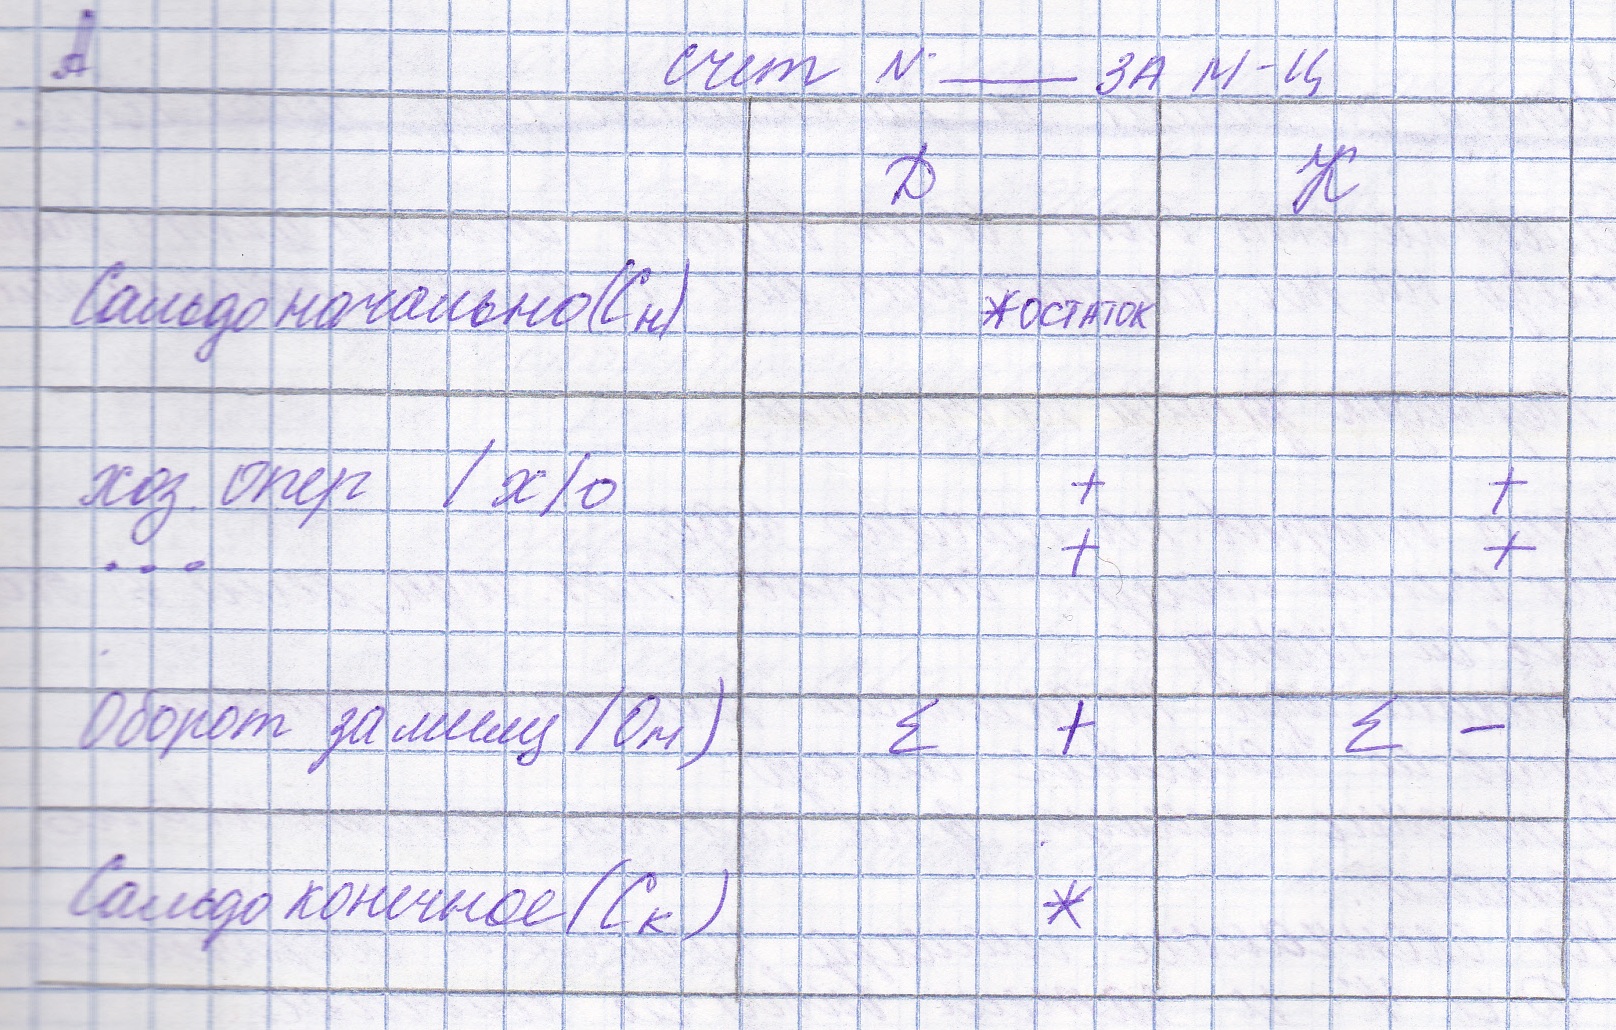 А
Счет № ____ ЗА М-Ц
Д К
Сальдо начально (Сн) *ОСТАТОК
хоз. опер /х/о + +
... + +
Оборот за месяц (Ом) Σ + Σ -
Сальдо конечное (Ск) *